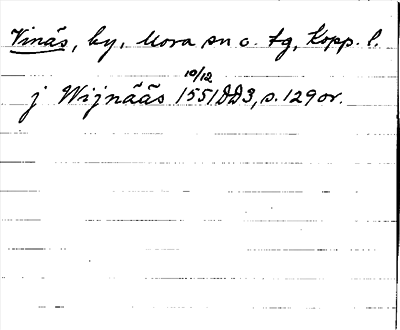 Vinäs, by, Mora sn o. tg, Kopp. l.
10/12
j Wijnääs 1551 DD3, s. 129 or.